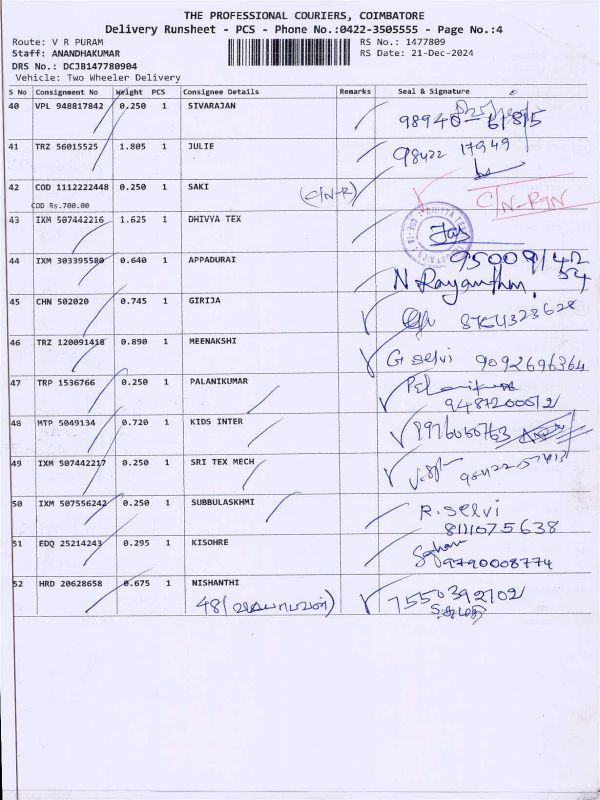 THE PROFESSIONAL COURIERS, COIMBATORE
Delivery Runsheet - PCS - Phone No.:0422-3505555 - Page No.:4
Route: V R PURAM RS No.: 1477809
Staff: ANANDHAKUMAR RS Date: 21-Dec-2024
DRS No.: DCJB147780904
Vehicle: Two Wheeler Delivery
S No Consignment No Weight PCS Consignee Details Remarks Seal & Signature
40 VPL 948817842 0.250 1 SIVARAJAN
41 TRZ 56015525 1.805 1 JULIE 98422 17949
42 COD 1112222448 0.250 1 SAKI (C/N-R) C/N-RTN
COD Rs.700.00
43 IXM 507442216 1.625 1 DHIVYA TEX
44 IXM 303395580 0.640 1 APPADURAI
45 CHN 502020 0.745 1 GIRIJA 8754323628
46 TRZ 120091418 0.890 1 MEENAKSHI G selvi 9092696364
47 TRP 1536766 0.250 1 PALANIKUMAR
48 MTP 5049134 0.720 1 KIDS INTER
49 IXM 507442217 0.250 1 SRI TEX MECH
50 IXM 507556242 0.250 1 SUBBULASKHMI R. selvi
8111075638
51 EDQ 25214243 0.295 1 KISOHRE
9790008774
52 HRD 20628658 0.675 1 NISHANTHI 7550392702
48